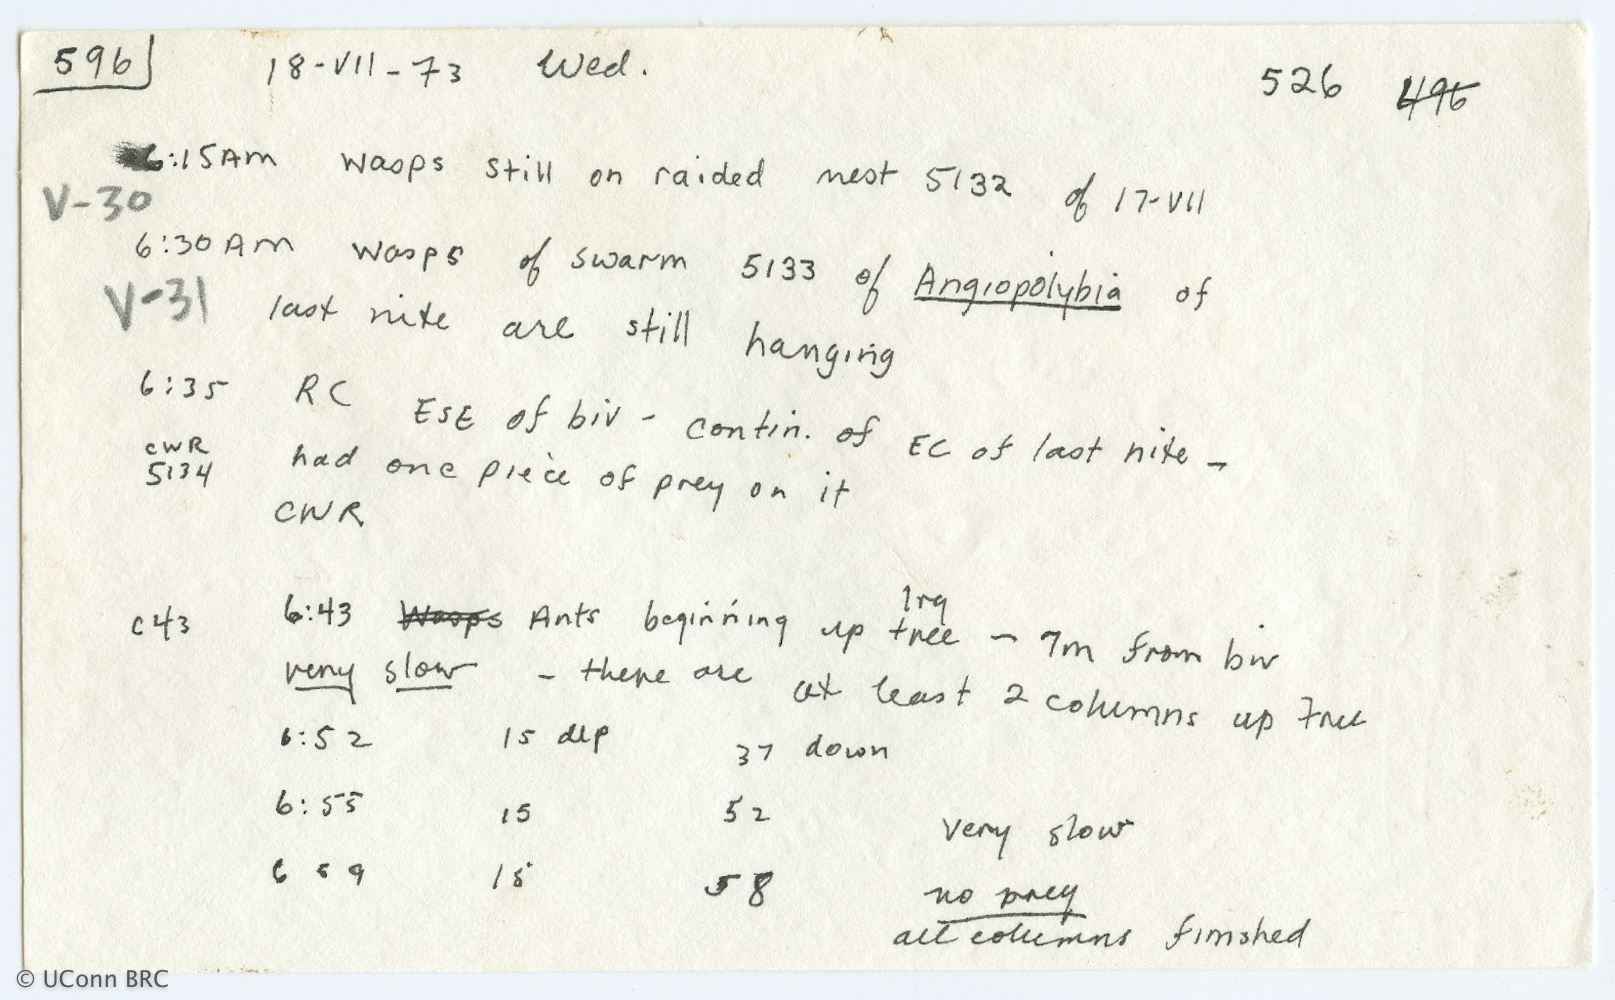 596 18-VII-73 Wed. 526 496
6:15AM Wasps still on raided nest 5132 of 17-VII
V-30
6:30AM Wasps of swarm 5133 of Angiopolybia of
V-31 last nite are still hanging
6:35 RC ESE of biv - contin. of EC of last nite -
CWR 5134 had one piece of prey on it
CWR
C43 6:43 Wasps Ants beginning up lrg tree - 7m from biv
very slow - there are at least 2 columns up tree
6:52 15 up 37 down
6:55 15 52 very slow
6 59 15 58 no prey
all columns finished
© UConn BRC